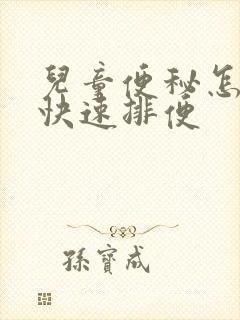 兒童便秘怎
快速排便
孫寶成